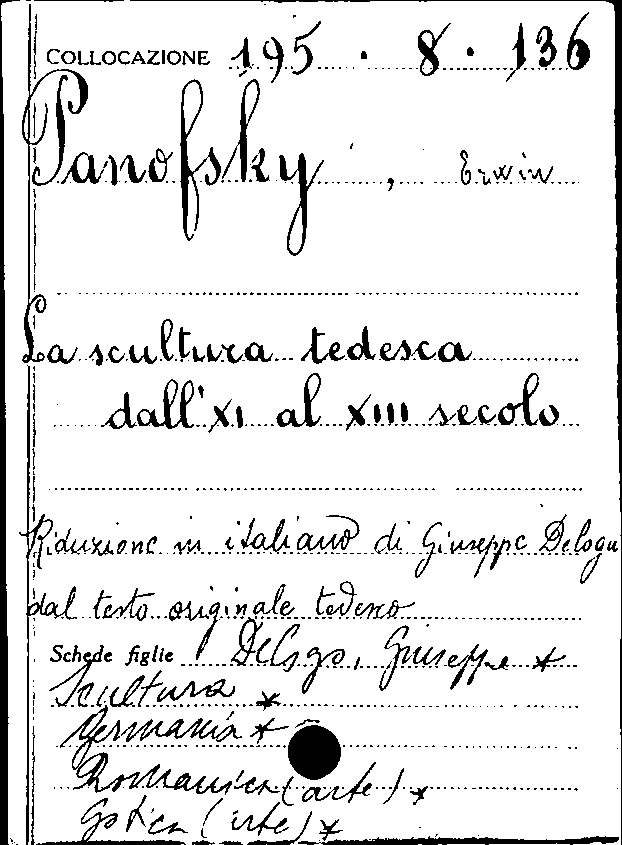 COLLOCAZIONE 195 · 8 · 136
Panofsky, Erwin
La scultura tedesca
dall'XI al XIII secolo
Riduzione in italiano di Giuseppe Delogu
dal testo originale tedesco
Schede figlie Delogo, Giuseppe *
Scultura *
Germania *
Romanica (arte) *
Gotica (arte) *